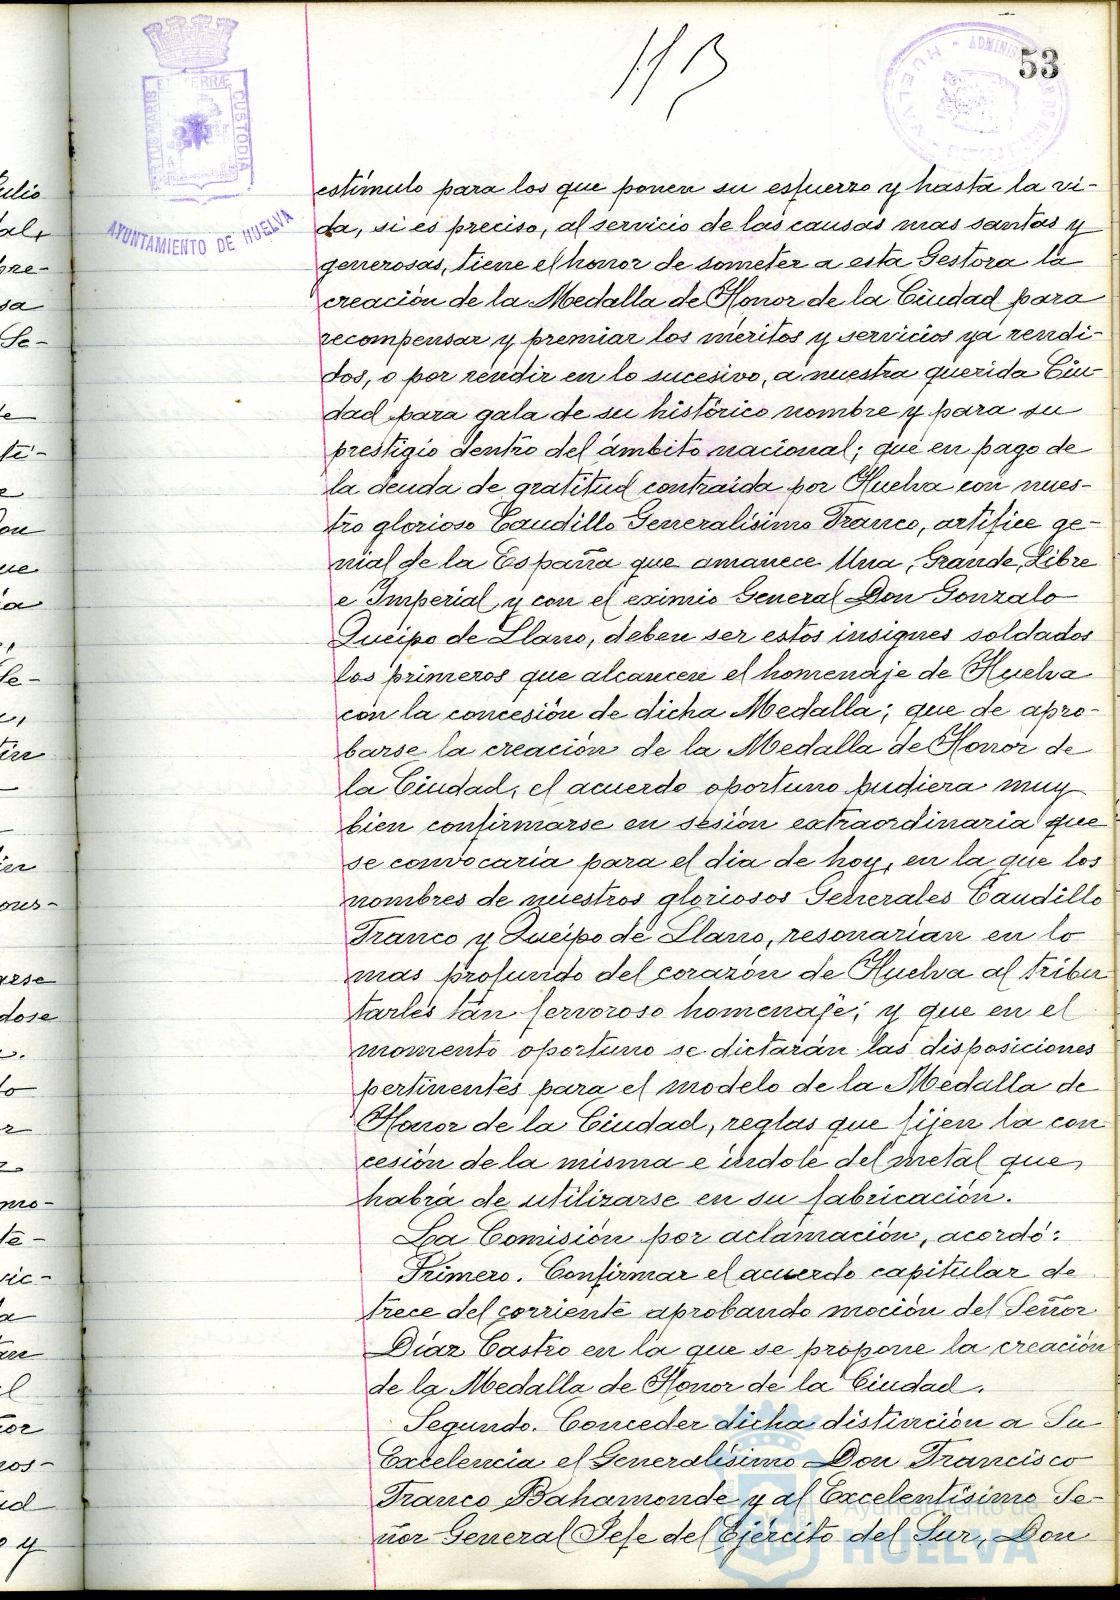 113
53
PORTUS MARIS ET TERRÆ CUSTODIA
AYUNTAMIENTO DE HUELVA
HUELVA
estímulo para los que ponen su esfuerzo y hasta la vi-
da, si es preciso, al servicio de las causas mas santas y
generosas, tiene el honor de someter a esta Gestora la
creación de la Medalla de Honor de la Ciudad para
recompensar y premiar los méritos y servicios ya rendi-
dos, o por rendir en lo sucesivo, a nuestra querida Ciu-
dad para gala de su histórico nombre y para su
prestigio dentro del ámbito nacional; que en pago de
la deuda de gratitud contraida por Huelva con nues-
tro glorioso Caudillo Generalísimo Franco, artífice ge-
nial de la España que amanece Una, Grande, Libre
e Imperial y con el eximio General Don Gonzalo
Queipo de Llano, deben ser estos insignes soldados
los primeros que alcancen el homenaje de Huelva
con la concesión de dicha Medalla; que de apro-
barse la creación de la Medalla de Honor de
la Ciudad, el acuerdo oportuno pudiera muy
bien confirmarse en sesión extraordinaria que
se convocaría para el dia de hoy, en la que los
nombres de nuestros gloriosos Generales Caudillo
Franco y Queipo de Llano, resonarían en lo
mas profundo del corazón de Huelva al tribu
tarles tan fervoroso homenaje; y que en el
momento oportuno se dictarán las disposiciones
pertinentes para el modelo de la Medalla de
Honor de la Ciudad, reglas que fijen la con
cesión de la misma e índole del metal que
habrá de utilizarse en su fabricación.
La Comisión por aclamación, acordó:
Primero. Confirmar el acuerdo capitular de
trece del corriente aprobando moción del Señor
Díaz Castro en la que se propone la creación
de la Medalla de Honor de la Ciudad.
Segundo. Conceder dicha distinción a Su
Excelencia el Generalísimo Don Francisco
Franco Bahamonde y al Excelentísimo Se-
ñor General Jefe del Ejército del Sur, Don
Ayuntamiento de
HUELVA